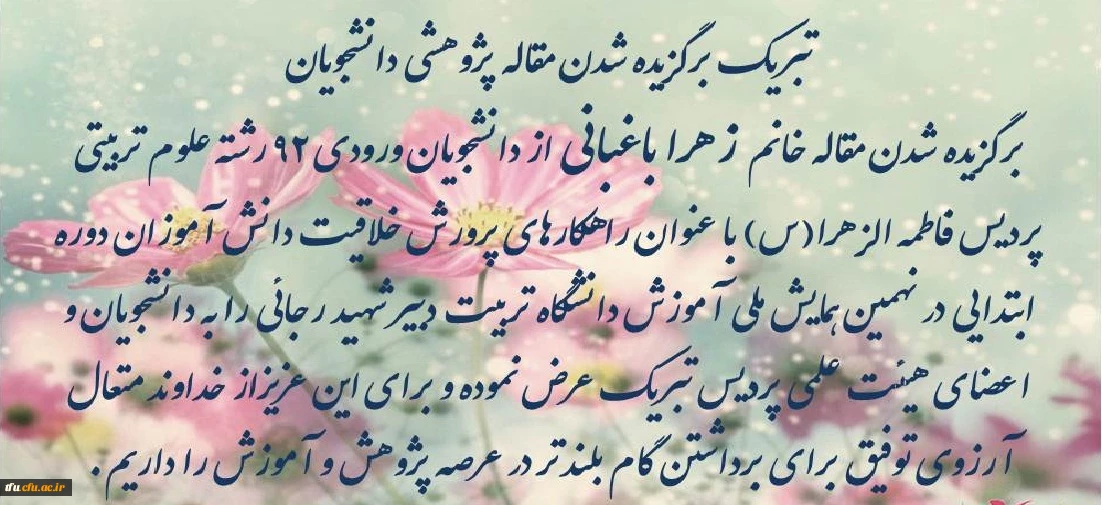 تبریک برگزیده شدن مقاله پژوهشی دانشجویان
برگزیده شدن مقاله خانم زهرا باغبانی از دانشجویان ورودی ۹۲ رشته علوم تربیتی
پردیس فاطمه الزهرا(س) با عنوان راهکارهای پرورش خلاقیت دانش آموزان دوره
ابتدایی در نهمین همایش ملی آموزش دانشگاه تربیت دبیر شهید رجائی را به دانشجویان و
اعضای هیئت علمی پردیس تبریک عرض نموده و برای این عزیز از خداوند متعال
آرزوی توفیق برای برداشتن گام بلندتر در عرصه پژوهش و آموزش را داریم .
tfu.cfu.ac.ir